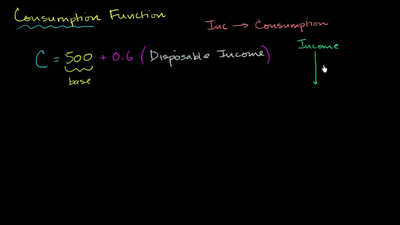 Consumption Function
Inc → Consumption
C = 500 + 0.6 ( Disposable Income )
base
Income